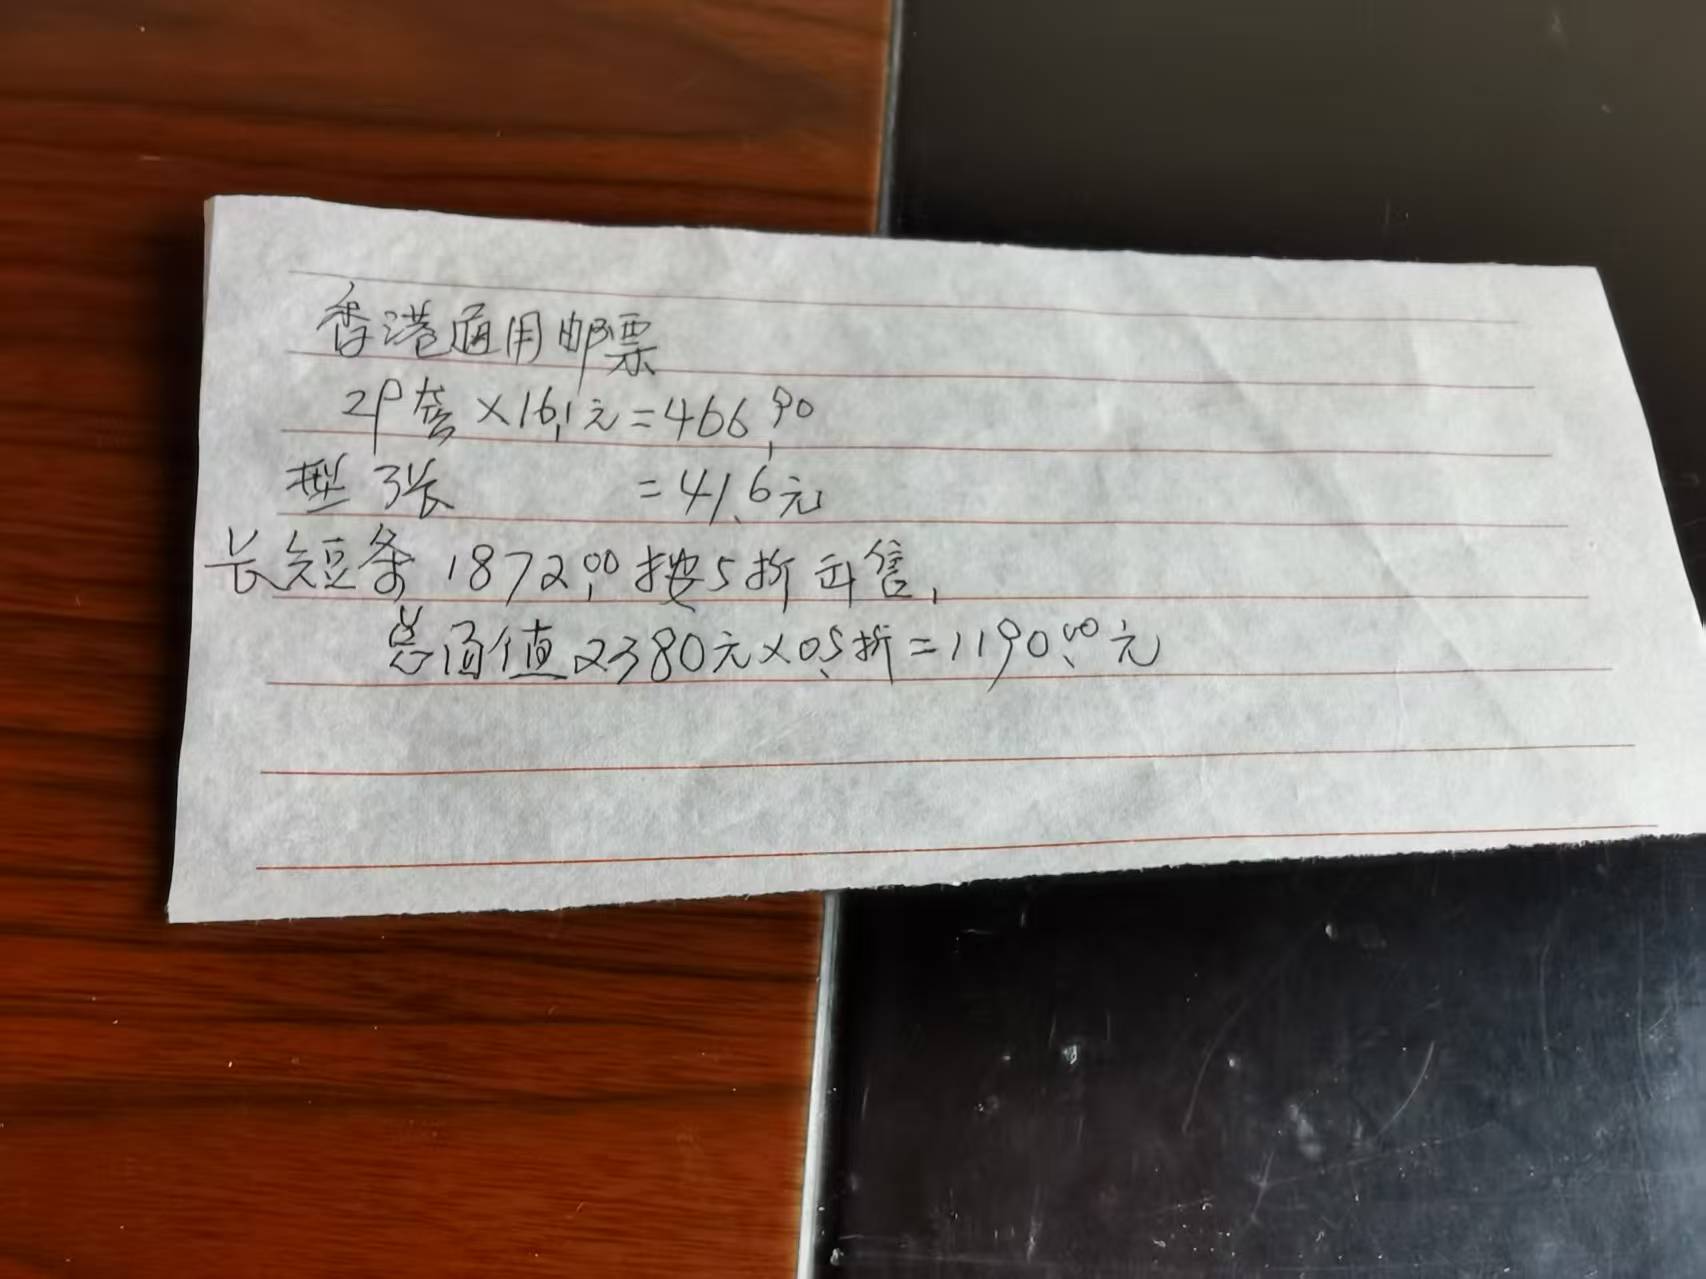 香港通用邮票
29套×16.1元=466.90
型3张 =41.6元
长短条1872.00按5折出售,
总面值2380元×0.5折=1190.00元